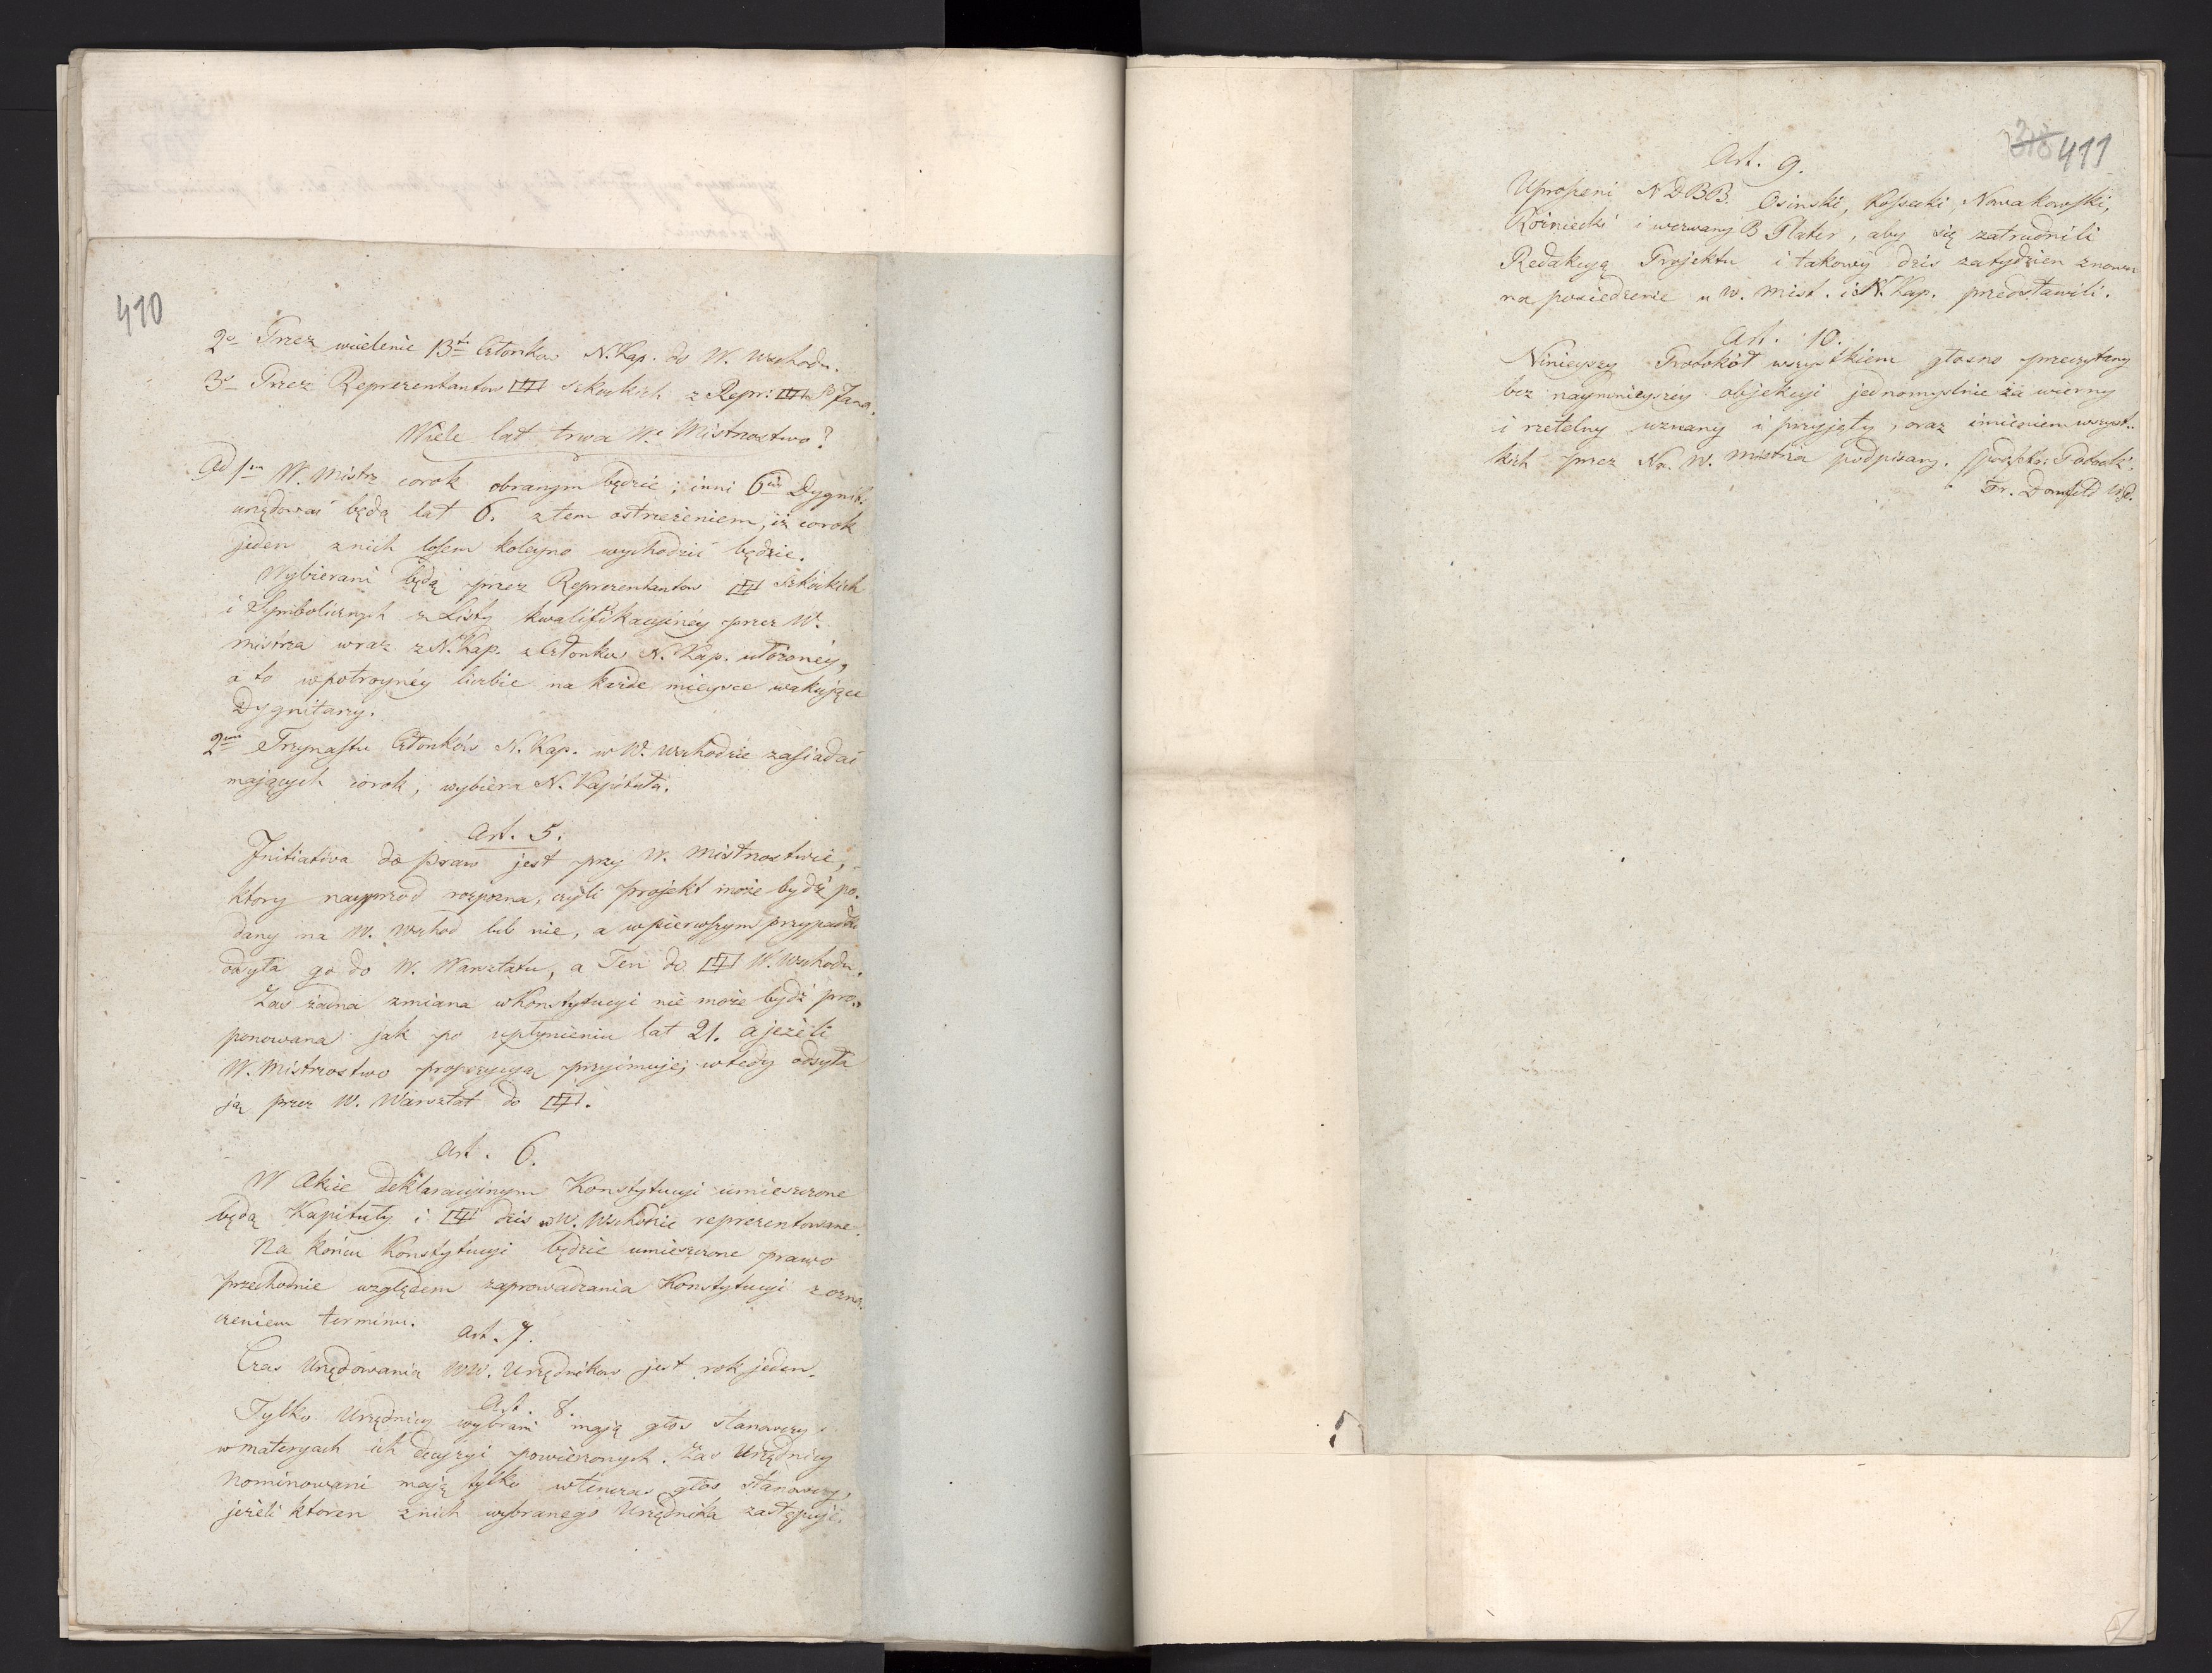 410
2o Przez wcielenie 13tu Członkow N. Kap. do W. Wschodu.
3o Przez Reprezentantow szkockich z Repr: S Jana.
Wiele lat trwa We Mistrzostwo?
Ad 1m W. Mistrz corok obranym będzie; inni 6ciu Dygnit.
urzędować będą lat 6. z tem ostrzeżeniem, iż corok
jeden z nich losem koleyno wychodzić będzie.
Wybierani będą przez Reprezentantow szkockich
i Symbolicznych z Listy kwalifikacyinéy przez W.
mistrza wraz z N. Kap. z Członkow N. Kap. ułożonéy,
a to w potroynéy liczbie na każde mieysce wakujące
Dygnitarzy.
2um Trzynastu Członków N. Kap. w W. Wschodzie zasiadać
mających corok, wybiera N. Kapituła.
Art. 5.
Initiativa do praw jest przy W. Mistrzostwie,
ktory nayprzod rozpozna, czyli projekt może bydź po-
dany na W. Wschod lub nie, a w pierwszym przypadku
odsyła go do W. Warsztatu, a Ten do W. Wschodu.
Zas żadna zmiana w Konstytucyi nie może bydź pro-
ponowana jak po upłynieniu lat 21. a jeżeli
W. Mistrzostwo propozycyą przyimuje; wtedy odsyła
ją przez W. Warsztat do
Art. 6.
W Akcie deklaracyinym Konstytucyi umieszczone
będą Kapituły i dzis w W. Wschodzie reprezentowane.
Na końcu Konstytucyi będzie umieszczone prawo
przechodnie względem zaprowadzania Konstytucyi z ozna-
czeniem terminu.
Art. 7.
Czas Urzędowania WW. Urzędnikow jest rok jeden.
Art. 8.
Tylko Urzędnicy wybrani mają głos stanowczy
w materyach ich decyzyi powierzonych. Zas Urzędnicy
Nominowani mają tylko wtenczas głos stanowczy,
jeżeli ktoren z nich wybranego Urzędnika zastępuje.
318 411
Art. 9.
Uproszeni N D BB. Osinski, Kossecki, Nowakowski,
Rożniecki i wezwany B Plater, aby się zatrudnili
Redakcyą Projektu i takowy dzis za tydzien znowu
na posiedzenie u W. Mist. i N. Kap. przedstawili.
Art. 10.
Ninieyszy Protokół wszystkiem głosno przeczytany
bez naymnieyszéy objekcyi jednomyslnie za wierny
i rzetelny uznany i przyjęty, oraz imieniem wszyst-
kich przez W. Mistrza podpisany. Potocki.
Fr.